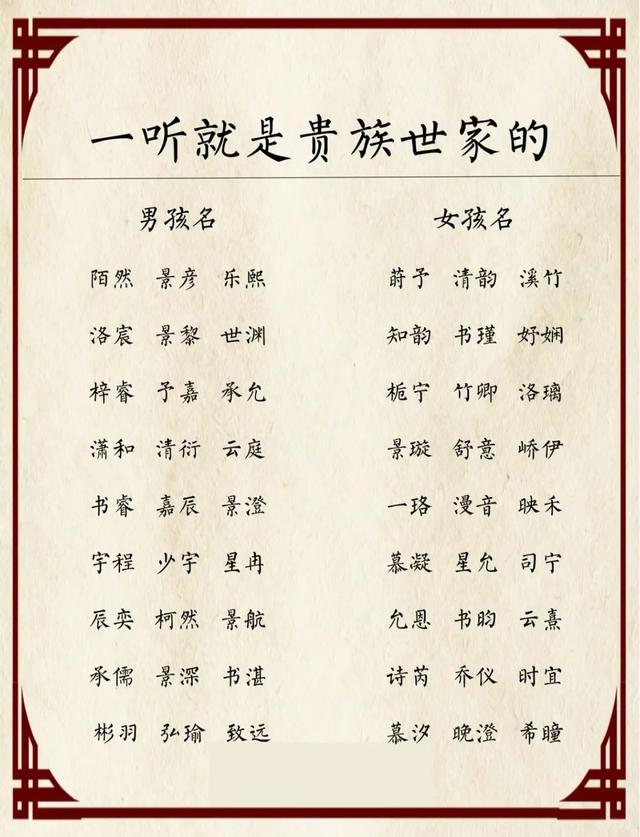 一听就是贵族世家的
男孩名 女孩名
陌然 景彦 乐熙 莳予 清韵 溪竹
洛宸 景黎 世渊 知韵 书瑾 妤娴
梓睿 予嘉 承允 栀宁 竹卿 洛璃
潇和 清衍 云庭 景璇 舒意 峤伊
书睿 嘉辰 景澄 一珞 漫音 映禾
宇程 少宇 星冉 慕凝 星允 司宁
辰奕 柯然 景航 允恩 书昀 云熹
承儒 景深 书湛 诗芮 乔仪 时宜
彬羽 弘瑜 致远 慕汐 晚澄 希瞳